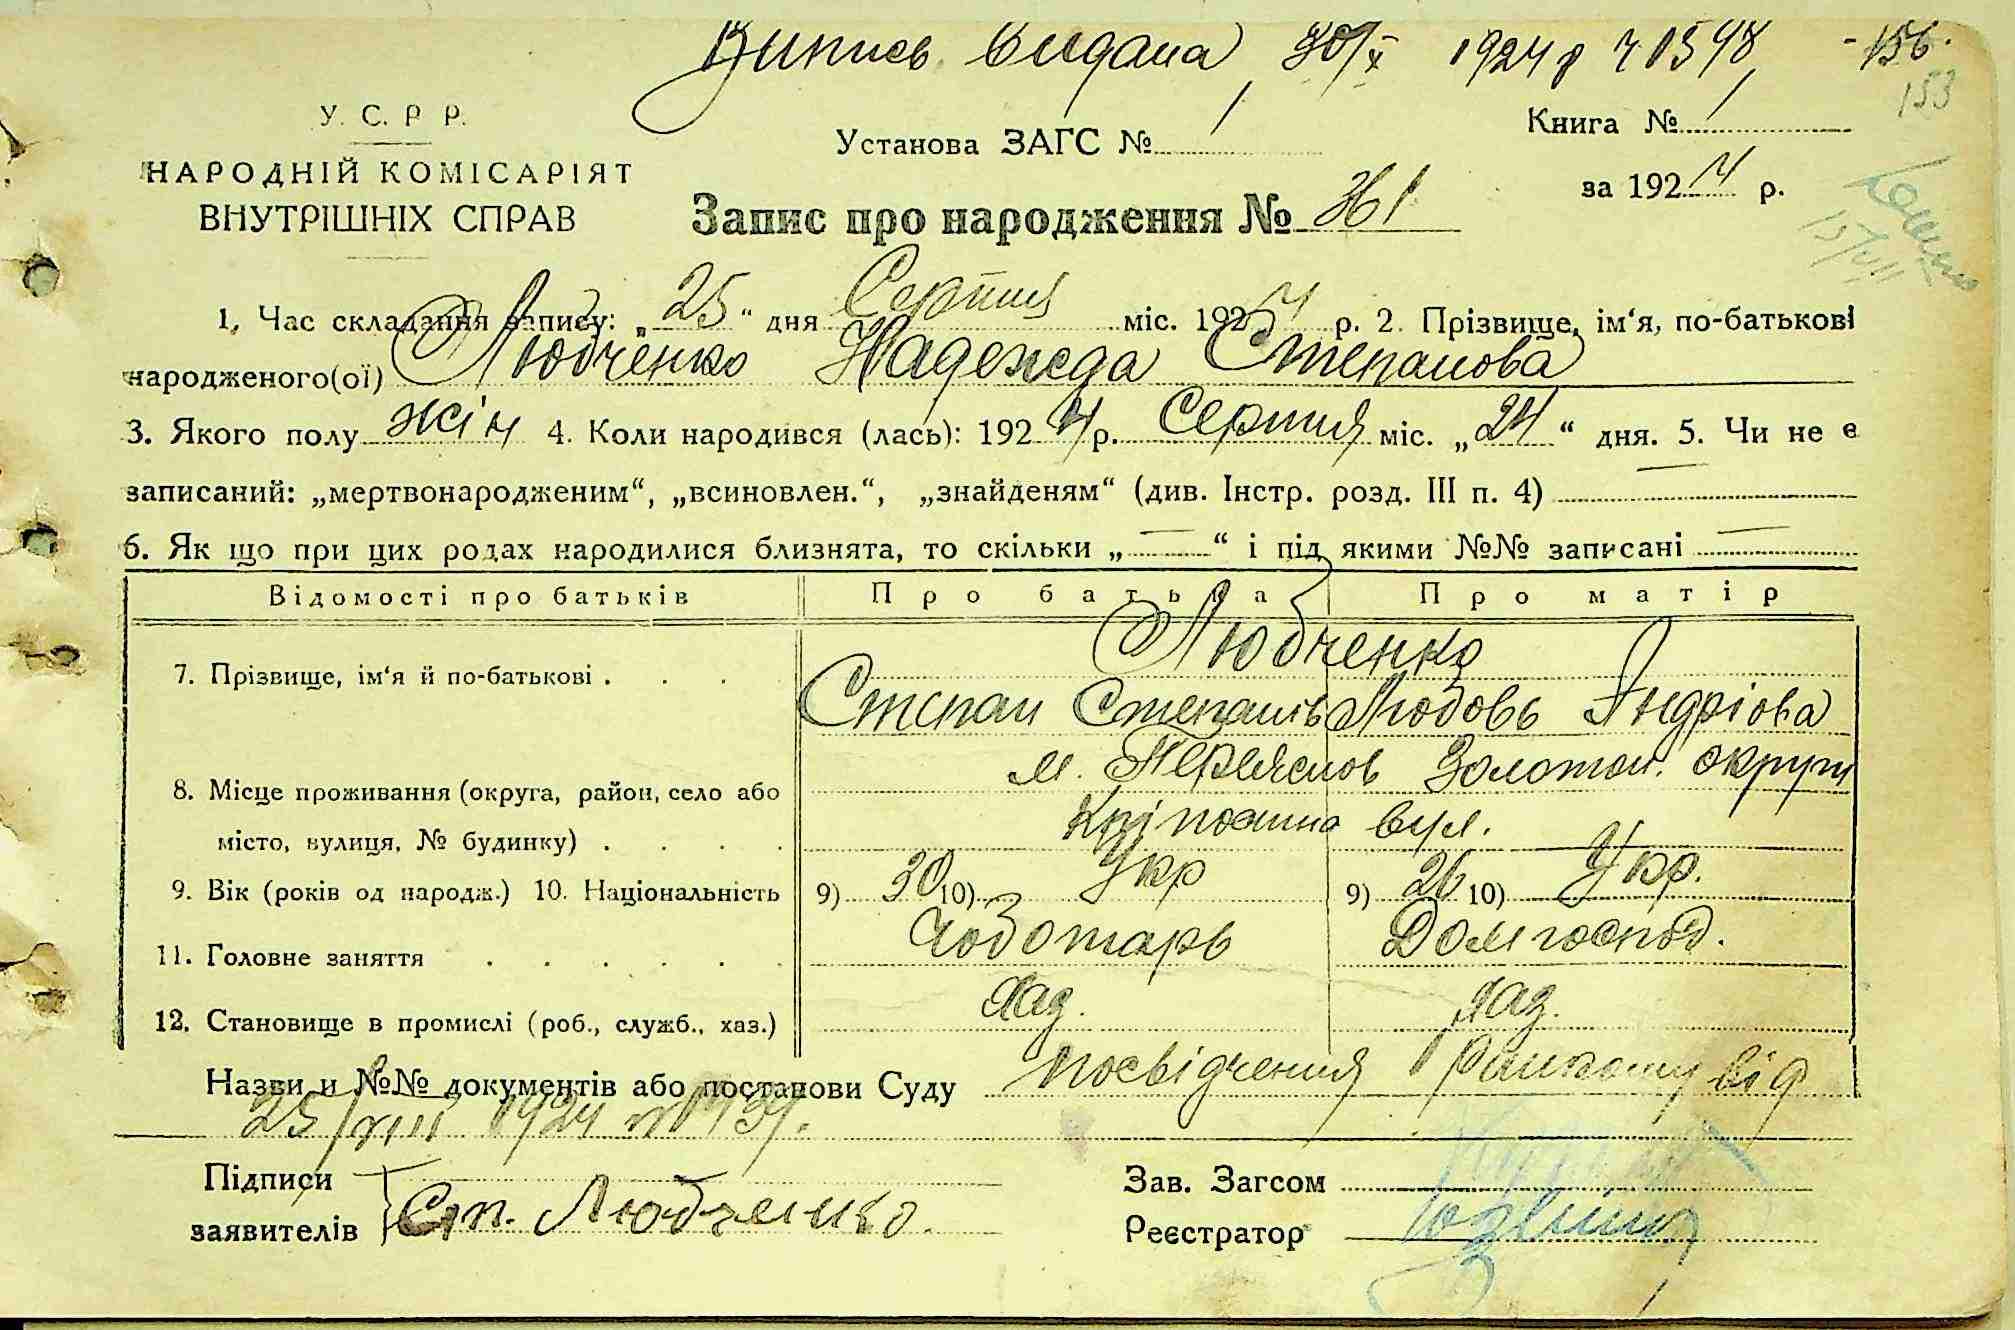 Випись видана 30/X 1924 р ч 1598, -156-
153
У. С. Р. Р.
НАРОДНІЙ КОМІСАРІЯТ
ВНУТРІШНІХ СПРАВ
Установа ЗАГС № 1
Книга № 1
за 1924 р.
Запис про народження № 361
1. Час складання запису: „25“ дня Серпня міс. 1924 р. 2. Прізвище, ім‘я, по-батькові
народженого(ої) Любченко Надежда Степанова
3. Якого полу жін 4. Коли народився (лась): 1924 р. Серпня міс. „24“ дня. 5. Чи не є
записаний: „мертвонародженим“, „всиновлен.“, „знайденям“ (див. Інстр. розд. III п. 4) —
6. Як що при цих родах народилися близнята, то скільки „—“ і під якими №№ записані —
Відомості про батьків Про батька Про матір
7. Прізвище, ім‘я й по-батькові . . . . Любченко
Степан Степанів Любовь Андріова
8. Місце проживання (округа, район, село або м. Переяслов Золотон. округи
місто, вулиця, № будинку) . . . . вул.
9. Вік (років од народж.) 10. Національність 9) 30 10) Укр 9) 26 10) Укр.
11. Головне заняття . . . . . . Чоботарь Домгоспод.
12. Становище в промислі (роб., служб., хаз.) Хаз. Хаз.
Назви и №№ документів або постанови Суду посвідчення від
25/VIII 1924
Підписи
заявителів Ст. Любченко.
Зав. Загсом
Реєстратор